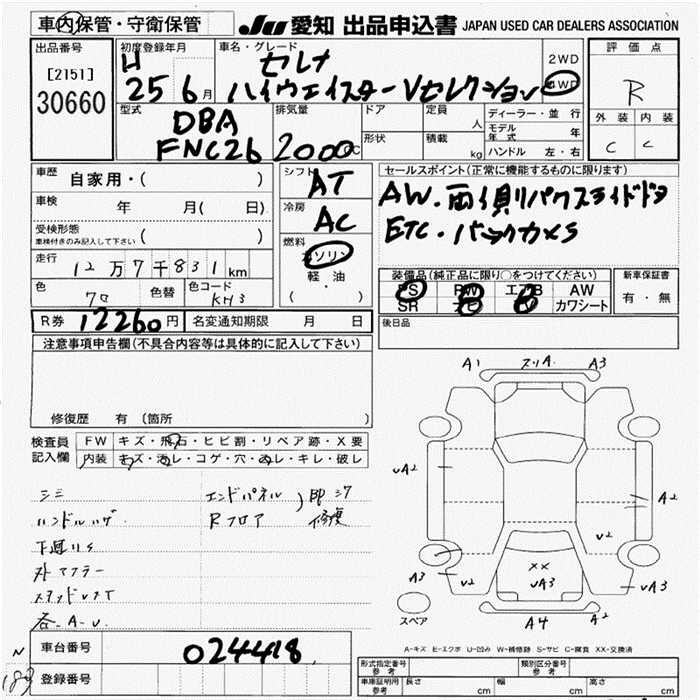 車内保管・守衛保管
JU 愛知 出品申込書 JAPAN USED CAR DEALERS ASSOCIATION
出品番号
[2151]
30660
初度登録年月
H
25 6月
車名・グレード
セレナ
ハイウェイスターVセレクション
2WD
4WD
評価点
R
外装 内装
C C
型式
DBA
FNC26
排気量
2000cc
ドア
形状
定員
人
積載
kg
ディーラー・並行
モデル年式 年
ハンドル 左・右
車歴
自家用・( )
車検
年 月( 日)
受検形態
車検付きのみ記入して下さい
( )
走行
12万7千831km
色
クロ
色替
色コード
KH3
シフト
AT
冷房
AC
燃料
ガソリン
軽・油
( )
セールスポイント(正常に機能するものに限ります)
AW.両側パワスライドドア
ETC.バックカメラ
装備品(純正品に限り○をつけてください)
PS PW エアB AW
SR カワシート
新車保証書
有・無
後日品
R券 12260円
名変通知期限 月 日
注意事項申告欄(不具合内容等は具体的に記入して下さい)
修復歴 有 (箇所
検査員
記入欄
FW キズ・飛石・ヒビ割・リペア跡・X要
内装 キズ・汚レ・コゲ・穴・ヌレ・キレ・破レ
エンドパネル
Rフロア
修復
A1 A3
UA2
A2
U2
XX
UA3
A3
U2
UA3
A4 A2
スペア
A-キズ E-エクボ U-凹み W-補修跡 S-サビ C-腐食 XX-交換済
車台番号
024418
登録番号
N
183
形式指定番号
参考
類別区分番号
参考
車庫証明用
参考
長さ cm
幅 cm
高さ cm